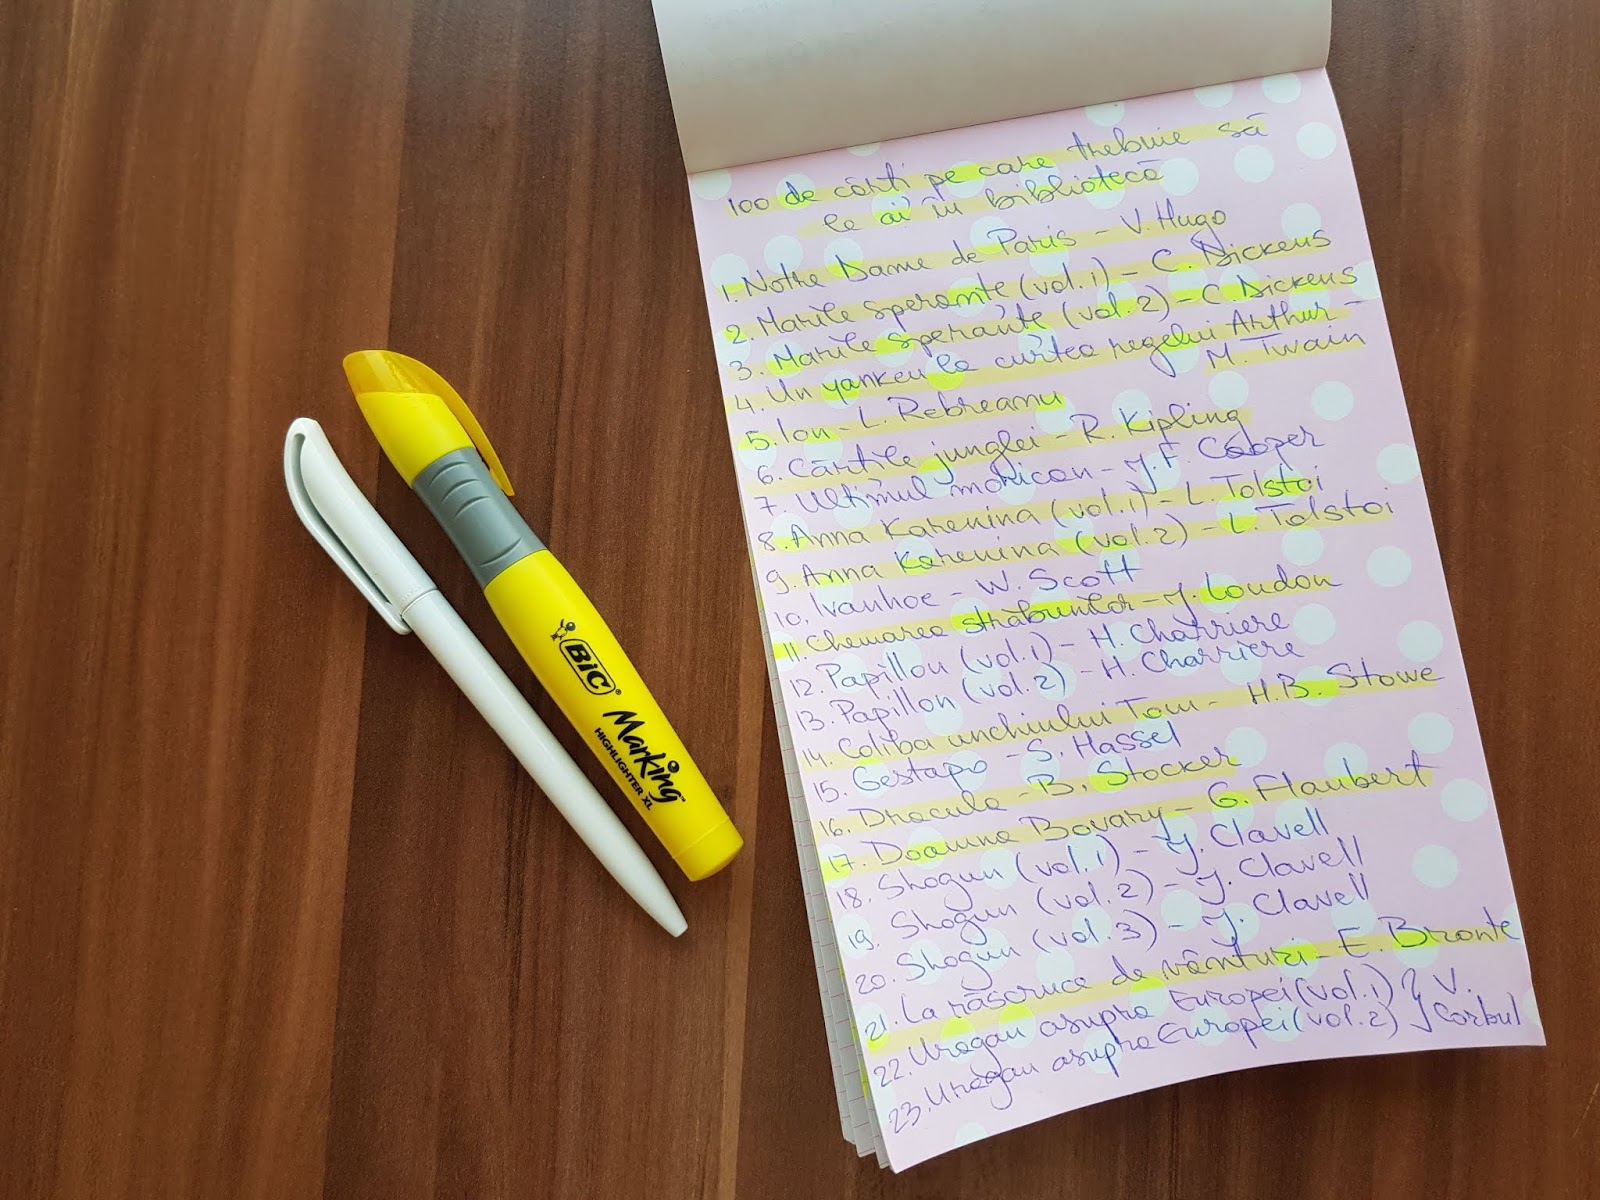 100 de cărți pe care trebuie să
le ai în bibliotecă
1. Notre Dame de Paris - V. Hugo
2. Marile speranțe (vol. 1) - C. Dickens
3. Marile speranțe (vol. 2) - C. Dickens
4. Un yankeu la curtea regelui Arthur -
M. Twain
5. Ion - L. Rebreanu
6. Cărțile junglei - R. Kipling
7. Ultimul mohican - J. F. Cooper
8. Anna Karenina (vol. 1) - L. Tolstoi
9. Anna Karenina (vol. 2) - L. Tolstoi
10. Ivanhoe - W. Scott
11. Chemarea străbunilor - J. London
12. Papillon (vol. 1) - H. Charriere
13. Papillon (vol. 2) - H. Charriere
14. Coliba unchiului Tom - H. B. Stowe
15. Gestapo - S. Hassel
16. Dracula - B. Stocker
17. Doamna Bovary - G. Flaubert
18. Shogun (vol. 1) - J. Clavell
19. Shogun (vol. 2) - J. Clavell
20. Shogun (vol. 3) - J. Clavell
21. La răscruce de vânturi - E. Bronte
22. Uragan asupra Europei (vol. 1) } V.
23. Uragan asupra Europei (vol. 2) } Corbul
BIC®
Marking™
HIGHLIGHTER XL